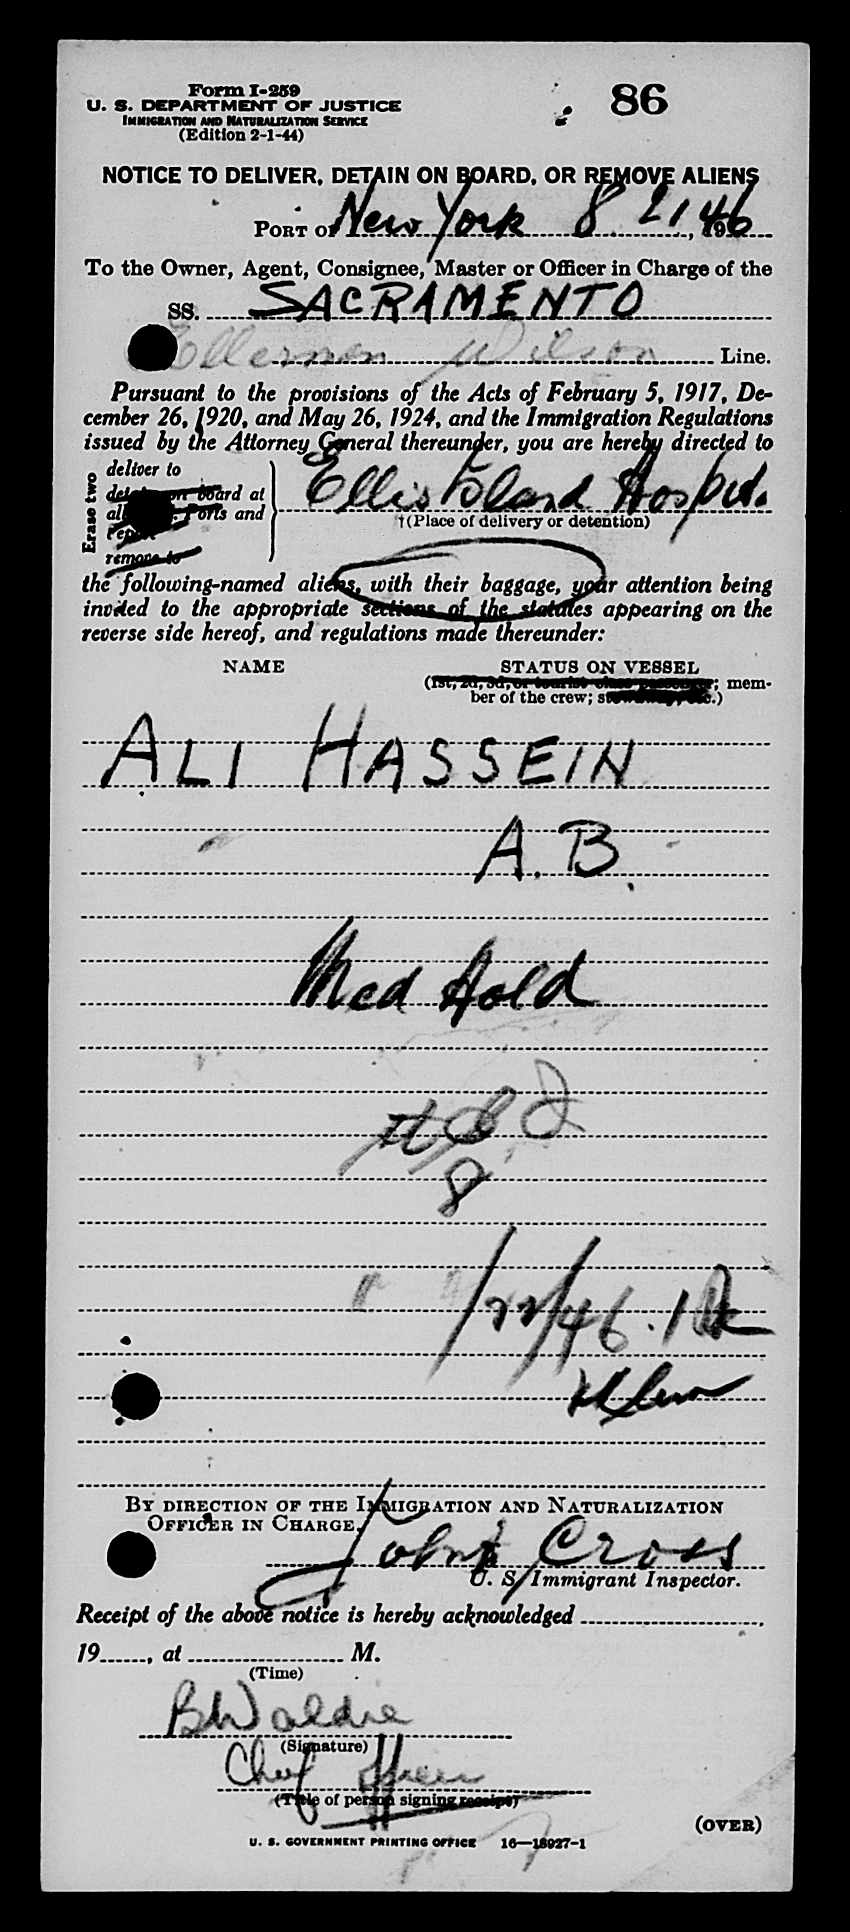 Form I-259
86
U. S. DEPARTMENT OF JUSTICE
IMMIGRATION AND NATURALIZATION SERVICE
(Edition 2-1-44)
NOTICE TO DELIVER, DETAIN ON BOARD, OR REMOVE ALIENS
PORT OF New York 8 21, 1946
To the Owner, Agent, Consignee, Master or Officer in Charge of the
SS. SACRAMENTO
Ellerman Wilson Line.
Pursuant to the provisions of the Acts of February 5, 1917, De-
cember 26, 1920, and May 26, 1924, and the Immigration Regulations
issued by the Attorney General thereunder, you are hereby directed to
Erase two
deliver to
detain on board at
all Ports and
remove to
Ellis Island Hospital.
†(Place of delivery or detention)
the following-named aliens, with their baggage, your attention being
invited to the appropriate sections of the statutes appearing on the
reverse side hereof, and regulations made thereunder:
NAME
STATUS ON VESSEL
(1st, 2d, 3d, or tourist class passenger; mem-
ber of the crew; stowaway, etc.)
ALI HASSEIN
A.B.
Med Hold
8
/22/46
BY DIRECTION OF THE IMMIGRATION AND NATURALIZATION
OFFICER IN CHARGE.
John J Cross
U. S. Immigrant Inspector.
Receipt of the above notice is hereby acknowledged
19 , at M.
(Time)
B W aldie
(Signature)
Chief Officer
(Title of person signing receipt)
(OVER)
U. S. GOVERNMENT PRINTING OFFICE 16—18927-1